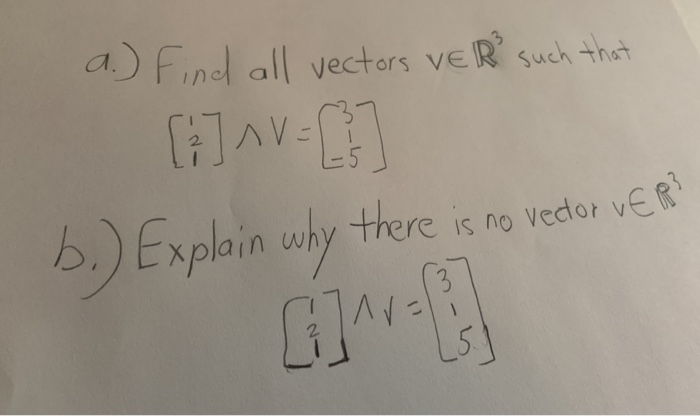 a.) Find all vectors v∈ℝ³ such that
[1 2 1] ∧ V = [3 1 -5]
b.) Explain why there is no vector v∈ℝ³
[1 2 1] ∧ v = [3 1 5]